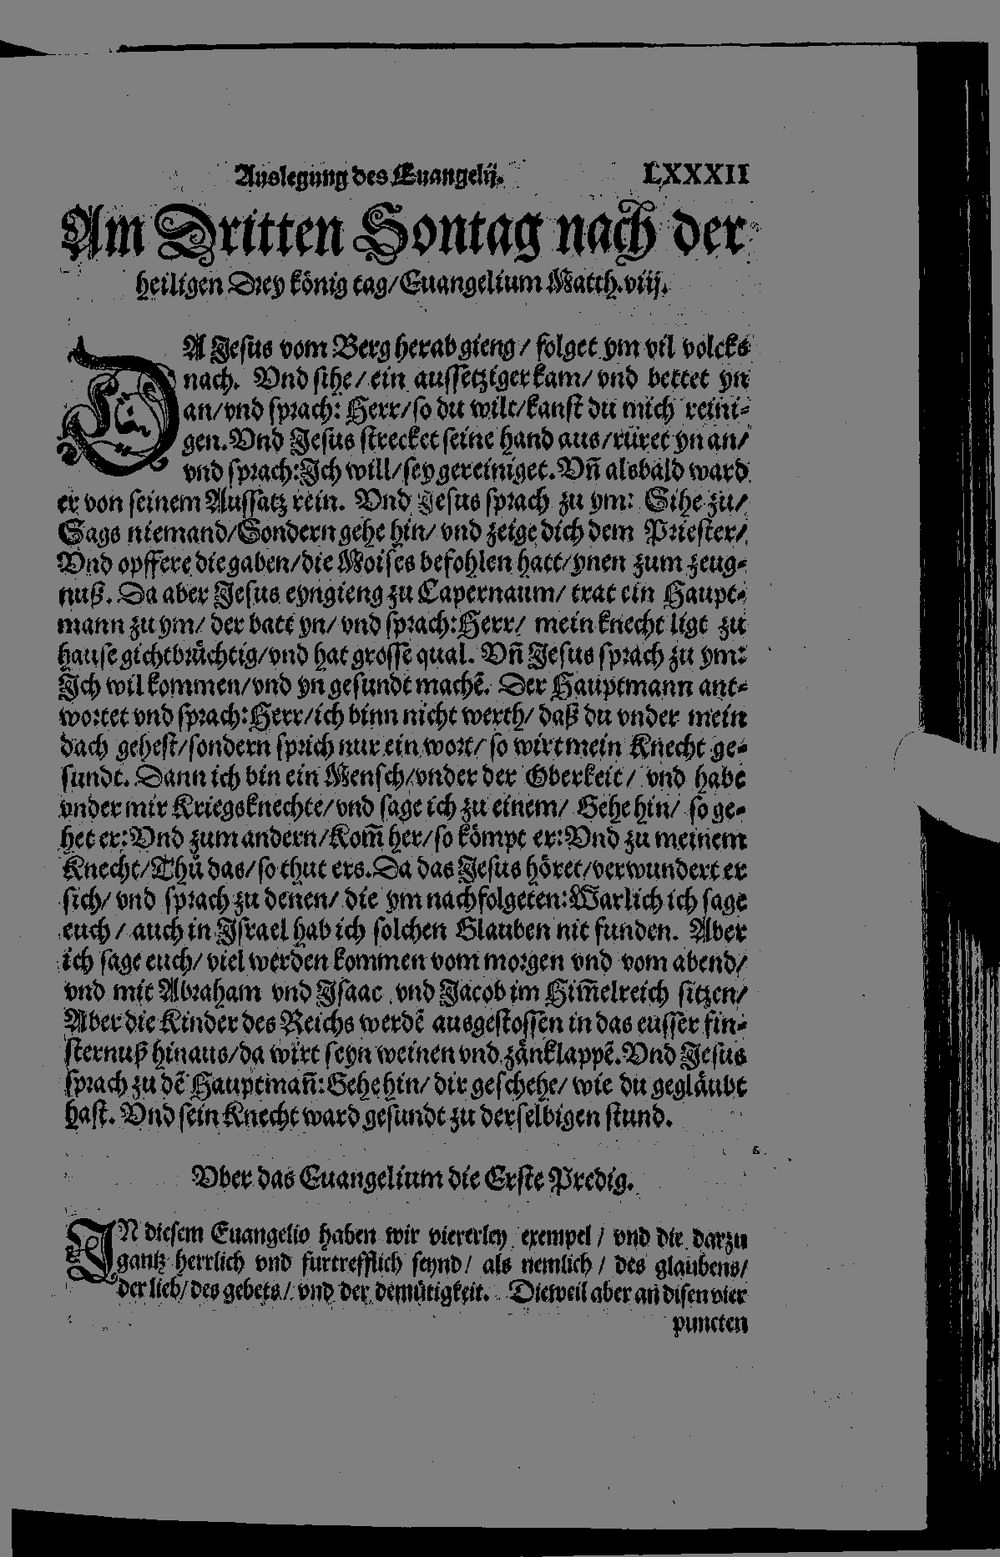 Auslegung des Euangelij. LXXXII
Am Dritten Sontag nach der
heiligen Drey könig tag/Euangelium Matth.viij.
DA Jesus vom Berg herab gieng/ folget ym vil volcks
nach. Vnd sihe/ ein aussetziger kam/ vnd bettet yn
an/vnd sprach: Herr/so du wilt/kanst du mich reini-
gen. Vnd Jesus strecket seine hand aus/rüret yn an/
vnd sprach:Ich will/sey gereiniget. Vñ alsbald ward
er von seinem Aussatz rein. Vnd Jesus sprach zu ym: Sihe zu/
Sags niemand/Sondern gehe hin/ vnd zeige dich dem Priester/
Vnd opffere die gaben/die Moises befohlen hatt/ynen zum zeug-
nuß. Da aber Jesus eyngieng zu Capernaum/ trat ein Haupt-
mann zu ym/ der batt yn/ vnd sprach:Herr/ mein knecht ligt zu
hause gichtbrüchtig/vnd hat grosse qual. Vñ Jesus sprach zu ym:
Ich wil kommen/vnd yn gesundt machē. Der Hauptmann ant-
wortet vnd sprach:Herr/ich binn nicht werth/ daß du vnder mein
dach gehest/sondern sprich nur ein wort/ so wirt mein Knecht ge-
sundt. Dann ich bin ein Mensch/vnder der Oberkeit/ vnd habe
vnder mir Kriegsknechte/vnd sage ich zu einem/ Gehe hin/ so ge-
het er:Vnd zum andern/Kom̃ her/so kömpt er:Vnd zu meinem
Knecht/Thů das/so thut ers. Da das Jesus höret/verwundert er
sich/ vnd sprach zu denen/ die ym nachfolgeten:Warlich ich sage
euch/ auch in Israel hab ich solchen Glauben nit funden. Aber
ich sage euch/ viel werden kommen vom morgen vnd vom abend/
vnd mit Abraham vnd Isaac vnd Jacob im Him̃elreich sitzen/
Aber die Kinder des Reichs werdē ausgestossen in das eusser fin-
sternuß hinaus/da wirt seyn weinen vnd zänklappē. Vnd Jesus
sprach zu dē Hauptmañ:Gehe hin/ dir geschehe/ wie du gegläubt
hast. Vnd sein Knecht ward gesundt zu derselbigen stund.
Vber das Euangelium die Erste Predig.
IN diesem Euangelio haben wir viererley exempel/ vnd die darzu
gantz herrlich vnd furtrefflich seynd/ als nemlich/ des glaubens/
der lieb/ des gebets/ vnd der demütigkeit. Dieweil aber an disen vier
puncten